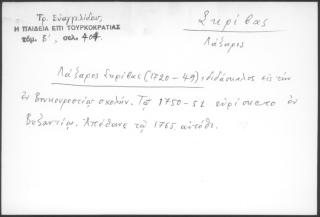 Τρ. Ευαγγελίδου,
Η ΠΑΙΔΕΙΑ ΕΠΙ ΤΟΥΡΚΟΚΡΑΤΙΑΣ
τόμ. Β', σελ. 404.
Σκρίβας
Λάζαρος
Λάζαρος Σκρίβας (1720-49) διδάσκαλος εἰς τὴν
ἐν Βουκουρεστίῳ σχολήν. Τῷ 1750-52 εὑρίσκετο ἐν
Βυζαντίῳ. Ἀπέθανε τῷ 1765 αὐτόθι.